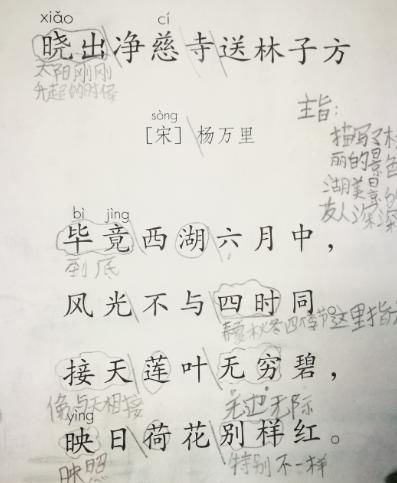 xiǎo cí
晓出净慈寺送林子方
太阳刚刚
升起的时候
sòng
[宋] 杨万里
主旨:
描写了
丽的景色
湖美景的
友人深深
bì jìng
毕竟西湖六月中，
到底
风光不与四时同。
春夏秋冬四季节 这里指
接天莲叶无穷碧，
像与天相接 无边无际
yìng
映日荷花别样红。
映照 特别不一样